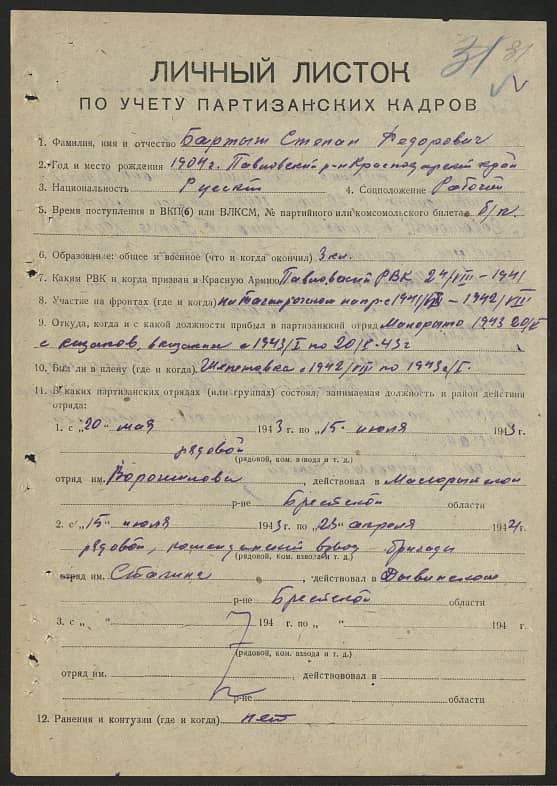 31 31
ЛИЧНЫЙ ЛИСТОК
ПО УЧЕТУ ПАРТИЗАНСКИХ КАДРОВ
1. Фамилия, имя и отчество Бартыш Степан Федорович
2. Год и место рождения 1904 г. Павловский р-н Краснодарский край
3. Национальность Русский 4. Соцположение Рабочий
5. Время поступления в ВКП(б) или ВЛКСМ, № партийного или комсомольского билета б/п
6. Образование: общее и военное (что и когда окончил) 3 кл.
7. Каким РВК и когда призван в Красную Армию Павловский РВК 24/VIII – 1941
8. Участие на фронтах (где и когда) на Таганрожском напр. с 1941/VIII – 1942/VIII
9. Откуда, когда и с какой должности прибыл в партизанский отряд 1943 20/V
с 1943/I по 20/5-43 г
10. Был ли в плену (где и когда) Шепетовка с 1942/VIII по 1943 г/I.
11. В каких партизанских отрядах (или группах) состоял, занимаемая должность и район действии
отряда:
1. с „20“ мая 1943 г. по „15“ июля 1943 г.
рядовой
(рядовой, ком. взвода и т. д.)
отряд им. Ворошилова, действовал в
р-не Брестской области
2. с „15“ июля 1943 г. по „23“ апреля 1944 г.
рядовой, комендантский взвод бригады
(рядовой, ком. взвода и т. д.)
отряд им. Сталина, действовал в Дывинском
р-не Брестской области
3. с „ “ 194 г. по „ “ 194 г.
(рядовой, ком. взвода и т. д.)
отряд им. , действовал в
р-не области
12. Ранения и контузии (где и когда) нет